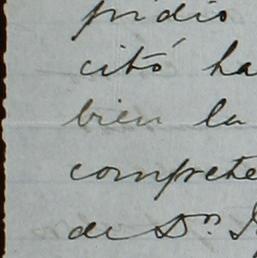 pidio
citó ha
bien la
comprete
de Dn